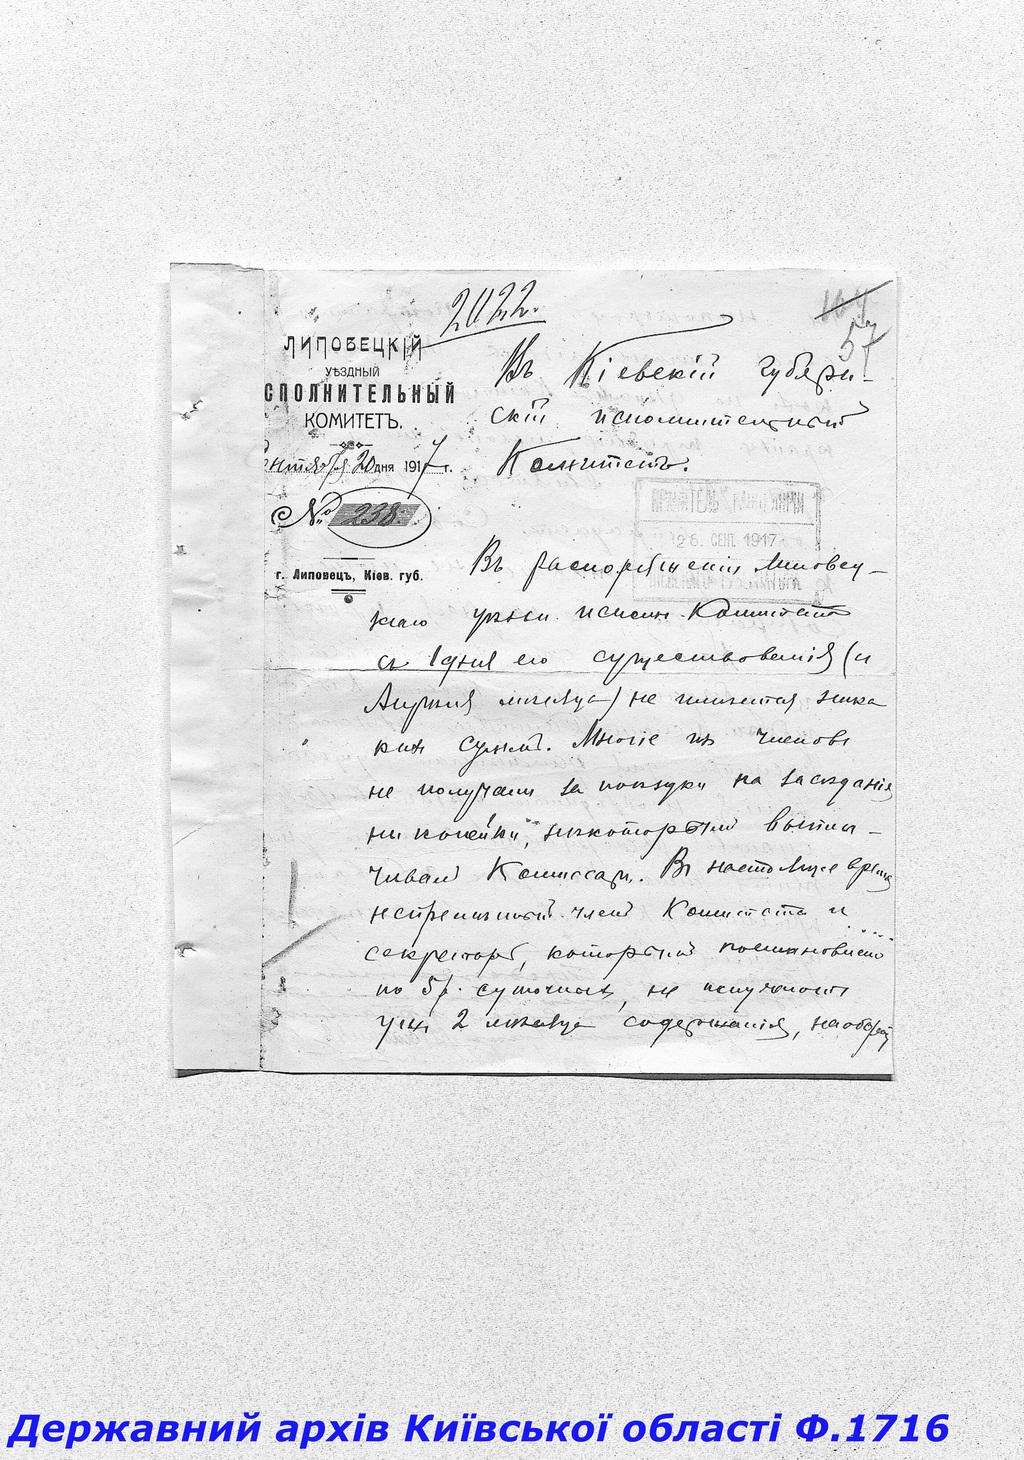 2022.
57
ЛИПОВЕЦКІЙ
УѢЗДНЫЙ
СПОЛНИТЕЛЬНЫЙ
КОМИТЕТЪ.
ентября 20 дня 1917 г.
№ 238.
г. Липовецъ, Кіев. губ.
Въ Кіевскій губерн-
скій исполнительный
Комитетъ.
26. СЕНТ. 1917
Въ распоряженіи Липовец-
каго уѣздн. исполн. Комитета
съ 1 дня его существованія (
Апрѣля мѣсяца) не имѣется ника
кихъ суммъ. Многіе изъ членовъ
не получали за поѣздки на засѣданія
ни копейки, нѣкоторымъ выпла-
чивалъ Комиссаръ. Въ настоящее время
непремѣнный членъ Комитета и
секретарь, которымъ постановлено
по 5 р. суточныхъ, не получаютъ
уже 2 мѣсяца содержанія, наоборот
Державний архів Київської області Ф.1716